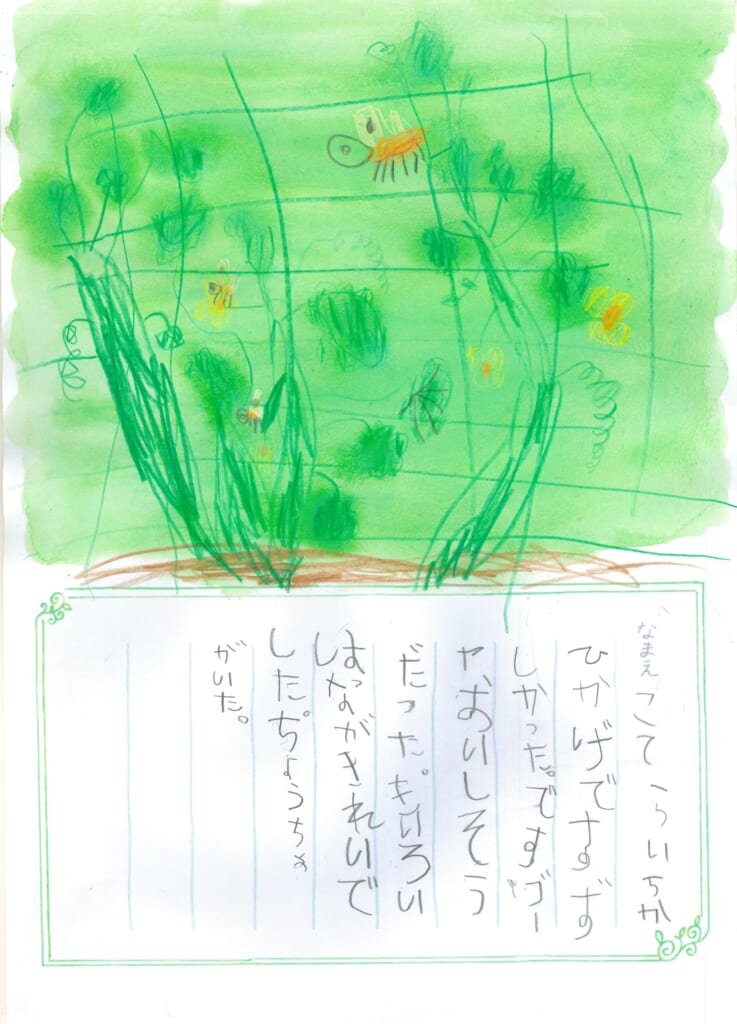 なまえ こてらいちか
ひかげですず
しかった。ですゴー
ヤおいしそう
だった。きいろい
はながきれいで
した。ちょうちょ
がいた。